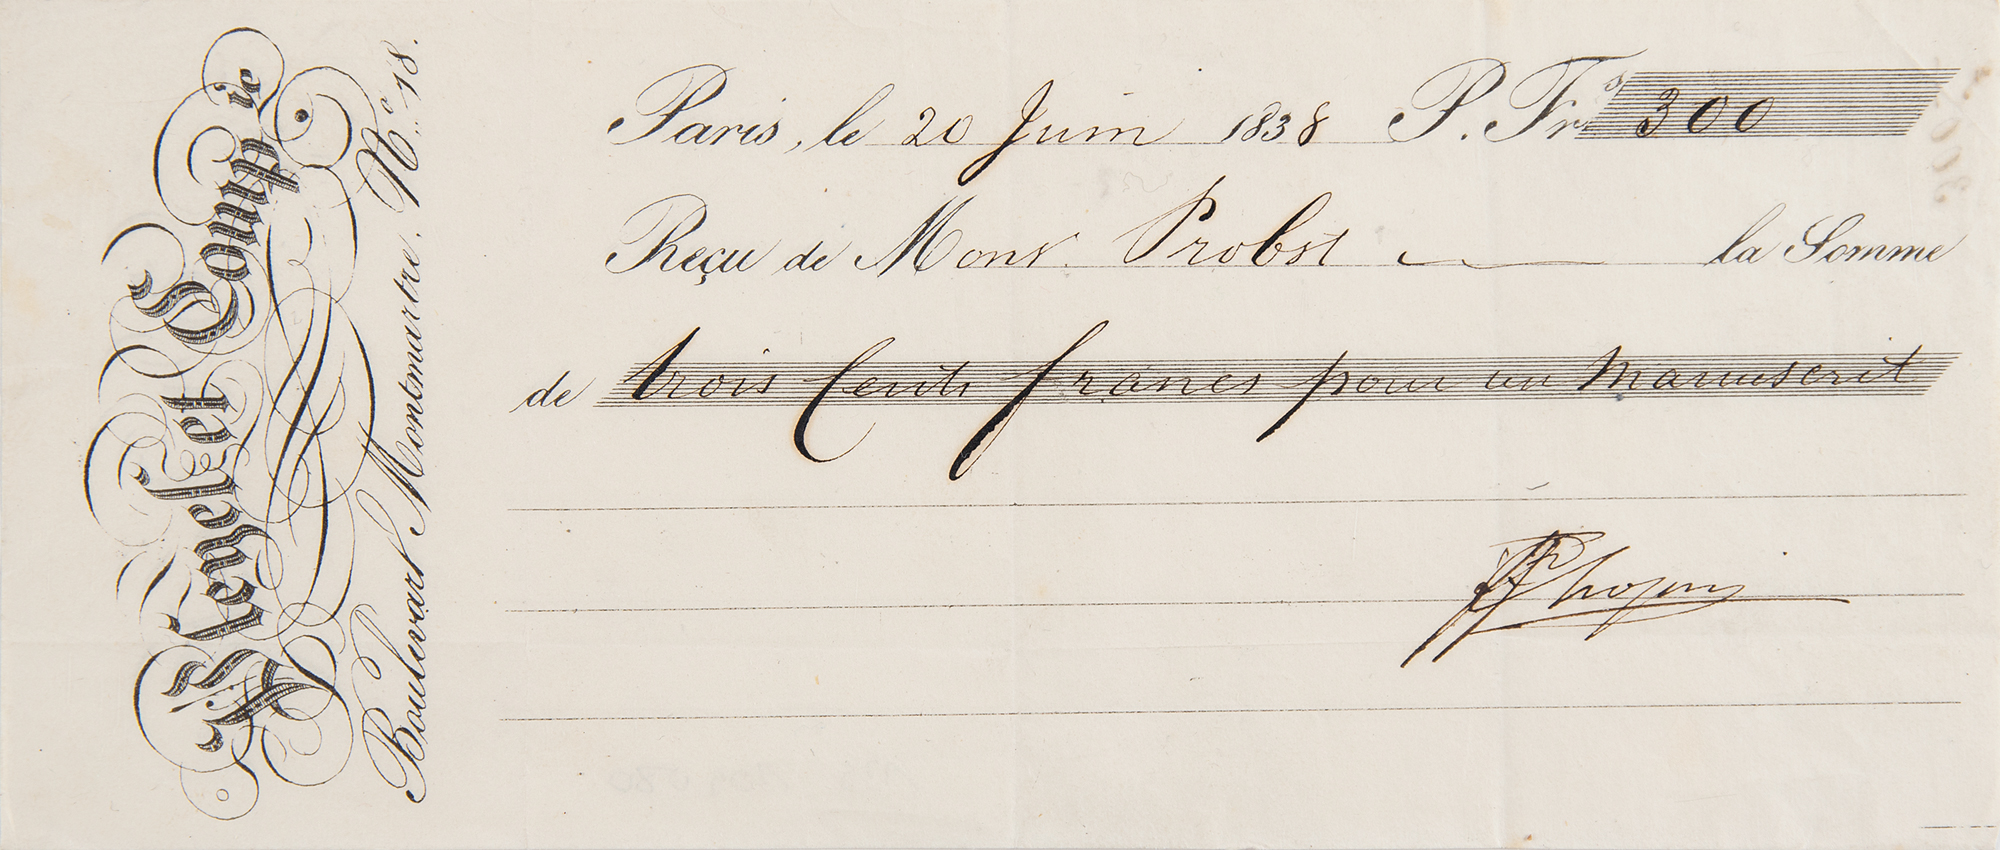 I. Pleyel et Comp.ie
Boulevart Montmartre. N.o 18.
Paris, le 20 Juin 1838 P. Frs 300
Reçu de Mons. Probst la Somme
de trois Cents francs pour un Manuscrit
FFChopin